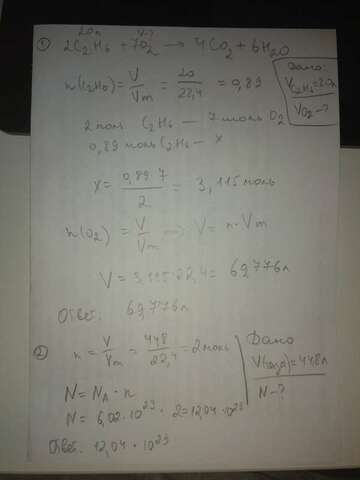 20л V-?
① 2C₂H₆ + 7O₂ → 4CO₂ + 6H₂O
Дано:
V C₂H₆ = 20л
V O₂ - ?
n(C₂H₆) = V/Vm = 20/22,4 = 0,89
2 моль C₂H₆ — 7 моль O₂
0,89 моль C₂H₆ — x
x = 0,89·7/2 = 3,115 моль
n(O₂) = V/Vm ⇒ V = n · Vm
V = 3,115 · 22,4 = 69,776л
Ответ: 69,776л
② n = V/Vm = 448/22,4 = 2 моль
Дано
V(газа) = 448л
N - ?
N = NA · n
N = 6,02 · 10²³ · 2 = 12,04 · 10²³
Ответ: 12,04 · 10²³